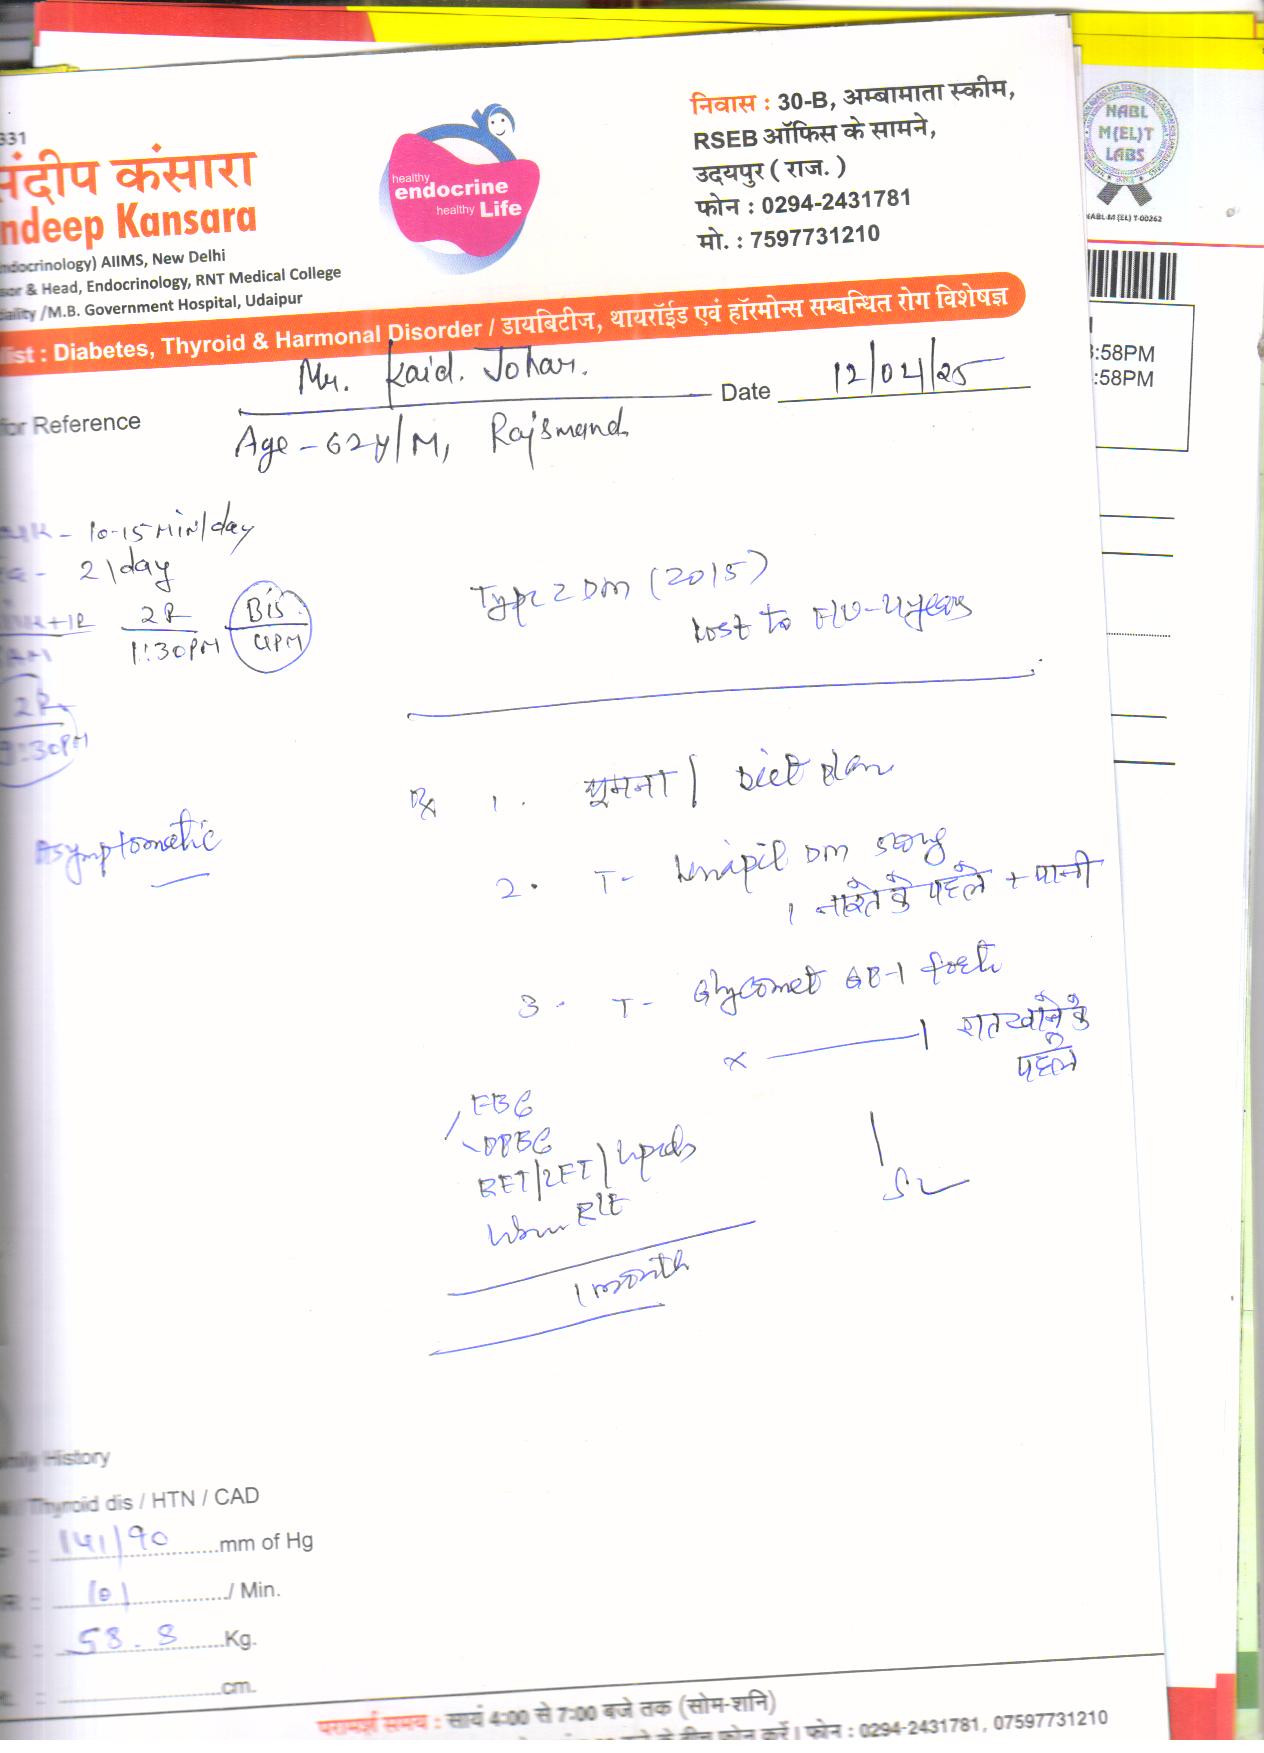 331
संदीप कंसारा
ndeep Kansara
ndocrinology) AIIMS, New Delhi
sor & Head, Endocrinology, RNT Medical College
ciality /M.B. Government Hospital, Udaipur
healthy
endocrine
healthy Life
निवास : 30-B, अम्बामाता स्कीम,
RSEB ऑफिस के सामने,
उदयपुर ( राज. )
फोन : 0294-2431781
मो. : 7597731210
NABL
M(EL)T
LABS
NABL-M (EL) T-00262
list : Diabetes, Thyroid & Harmonal Disorder / डायबिटीज, थायरॉईड एवं हॉरमोन्स सम्बन्धित रोग विशेषज्ञ
:58PM
:58PM
for Reference
Mr. Kaid. Johar.
Date 12/04/25
Age - 62y/M, Rajsmand
- 10-15 Min/day
- 2/day
2R
1:30PM
Bis
4PM
2R
9:30PM
Asymptomatic
Type 2 DM (2015)
Lost to F/U - 4 years
Rx 1. घूमना / Diet plan
2. T- DM
1 नाश्ते के पहले + पानी
3. T- Glycomet GP-1 forte
x 1 रात खाने के
पहले
FBG
PPBG
RFT/LFT/Lipids
Urine R/E
1 month
mily History
Thyroid dis / HTN / CAD
141/90 mm of Hg
101 / Min.
58.8 Kg.
cm.
परामर्श समय : सायं 4:00 से 7:00 बजे तक (सोम-शनि)
फोन करें । फोन : 0294-2431781, 07597731210